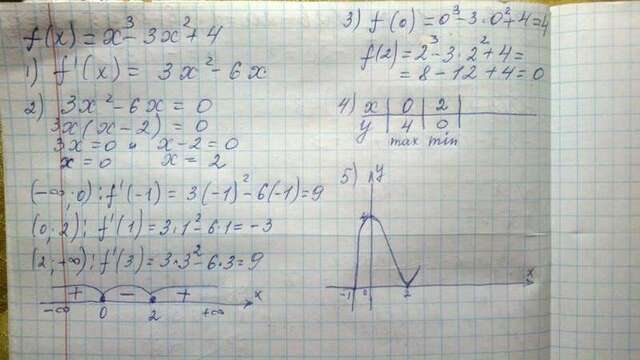 f(x) = x³ - 3x² + 4
1) f'(x) = 3x² - 6x
2) 3x² - 6x = 0
3x(x - 2) = 0
3x = 0 и x - 2 = 0
x = 0 x = 2
(-∞; 0): f'(-1) = 3·(-1)² - 6(-1) = 9
(0; 2): f'(1) = 3·1² - 6·1 = -3
(2; +∞): f'(3) = 3·3² - 6·3 = 9
+ - + x
-∞ 0 2 +∞
3) f(0) = 0³ - 3·0² + 4 = 4
f(2) = 2³ - 3·2² + 4 =
= 8 - 12 + 4 = 0
4) x | 0 | 2 |
y | 4 | 0 |
max min
5) y
4
x
-1 0 2